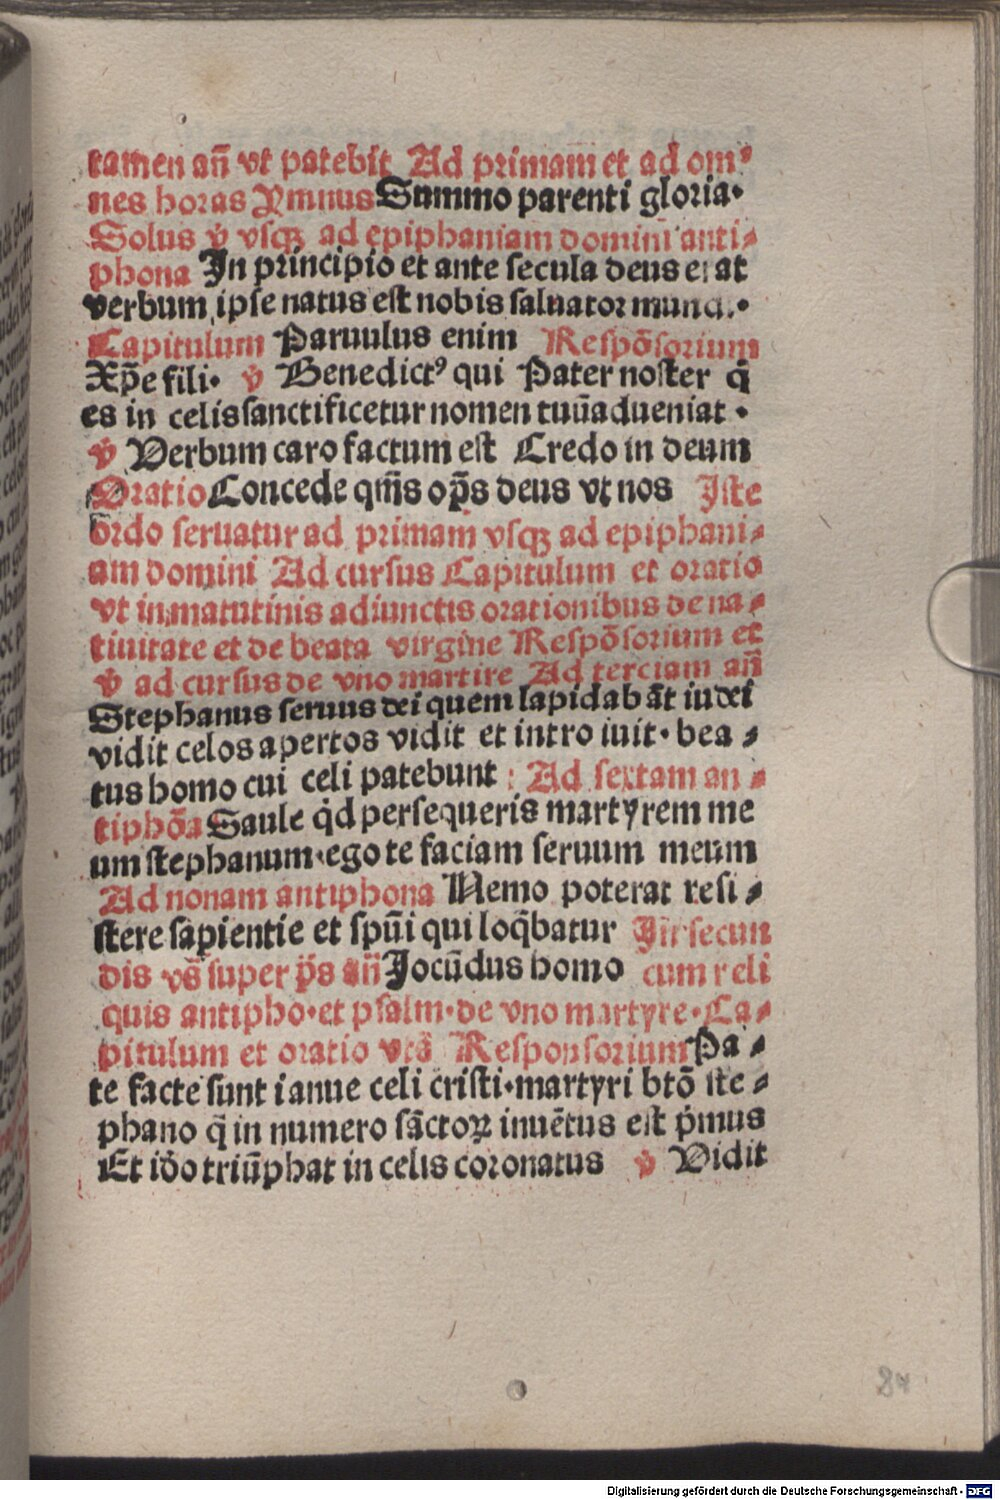 tamen añ vt patebit Ad primam et ad om⸗
nes horas Ymnus Summo parenti gloria·
Solus ꝟ vsqꝫ ad epiphaniam domini anti⸗
phona In principio et ante secula deus erat
verbum ipse natus est nobis saluator mundi·
Capitulum Paruulus enim Respōsorium
Xp̄e fili· ꝟ Benedictꝰ qui Pater noster q̄
es in celis sanctificetur nomen tuū adueniat·
ꝟ Verbum caro factum est Credo in deum
Oratio Concede qm̄s op̄s deus vt nos Iste
ordo seruatur ad primam vsqꝫ ad epiphani⸗
am domini Ad cursus Capitulum et oratio
vt in matutinis adiunctis orationibus de na⸗
tiuitate et de beata virgine Respōsorium et
ꝟ ad cursus de vno martire Ad terciam añ
Stephanus seruus dei quem lapidabāt iudei
vidit celos apertos vidit et intro iuit· bea⸗
tus homo cui celi patebunt: Ad sextam an⸗
tiphōa Saule q̇d persequeris martyrem me
um stephanum·ego te faciam seruum meum
Ad nonam antiphona Nemo poterat resi⸗
stere sapientie et spūi qui loq̄batur In secun
dis vs̄ super p̄s añ Iocūdus homo cum reli
quis antipho·et psalm·de vno martyre·Ca⸗
pitulum et oratio vtā Responsorium Pa⸗
te facte sunt ianue celi cristi·martyri btō ste⸗
phano q̄ in numero sāctoꝝ inuētus est ṗmus
Et iđo triūphat in celis coronatus ꝟ Vidit
84
Digitalisierung gefördert durch die Deutsche Forschungsgemeinschaft - DFG